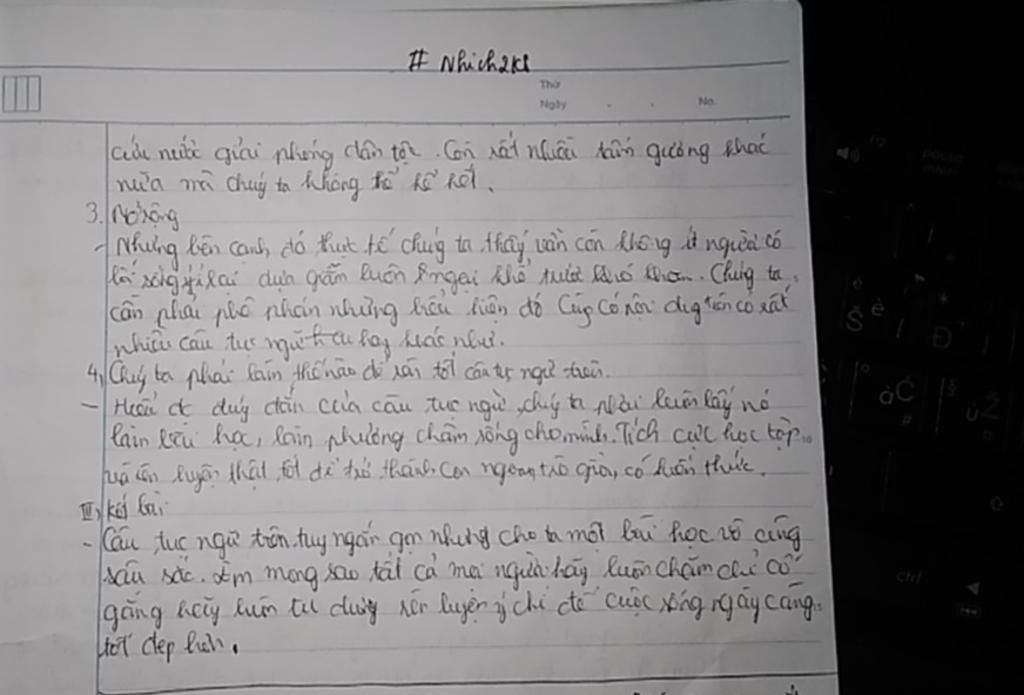 # Nhich2k8
Thứ
Ngày . . No.
cứu nước giải phóng dân tộc. Còn rất nhiều tấm gương khác
nữa mà chúng ta không thể kể hết.
3. Mở rộng
- Nhưng bên cạnh, đó thực tế chúng ta thấy vẫn còn không ít người có
lối sống ỷ lại dựa dẫm luôn ngại khó trước khó khăn. Chúng ta
cần phải phê phán những biểu hiện đó Cũng có nội dung trên có rất
nhiều câu tục ngữ hay khác như.
4, Chúng ta phải làm thế nào để tốt câu tục ngữ trên.
- Hiểu đc đúng đắn của câu tục ngữ, chúng ta phải luôn lấy nó
làm bài học, làm phương châm sống cho mình. Tích cực học tập
và rèn luyện thật tốt để trở thành con ngoan, trò giỏi, có kiến thức.
III, Kết bài
- Câu tục ngữ trên, tuy ngắn gọn nhưng cho ta một bài học vô cùng
sâu sắc. mong sao tất cả mọi người hãy luôn chăm chỉ cố
gắng hãy luôn tu dưỡng rèn luyện ý chí để cuộc sống ngày càng
tốt đẹp hơn.
ctrl